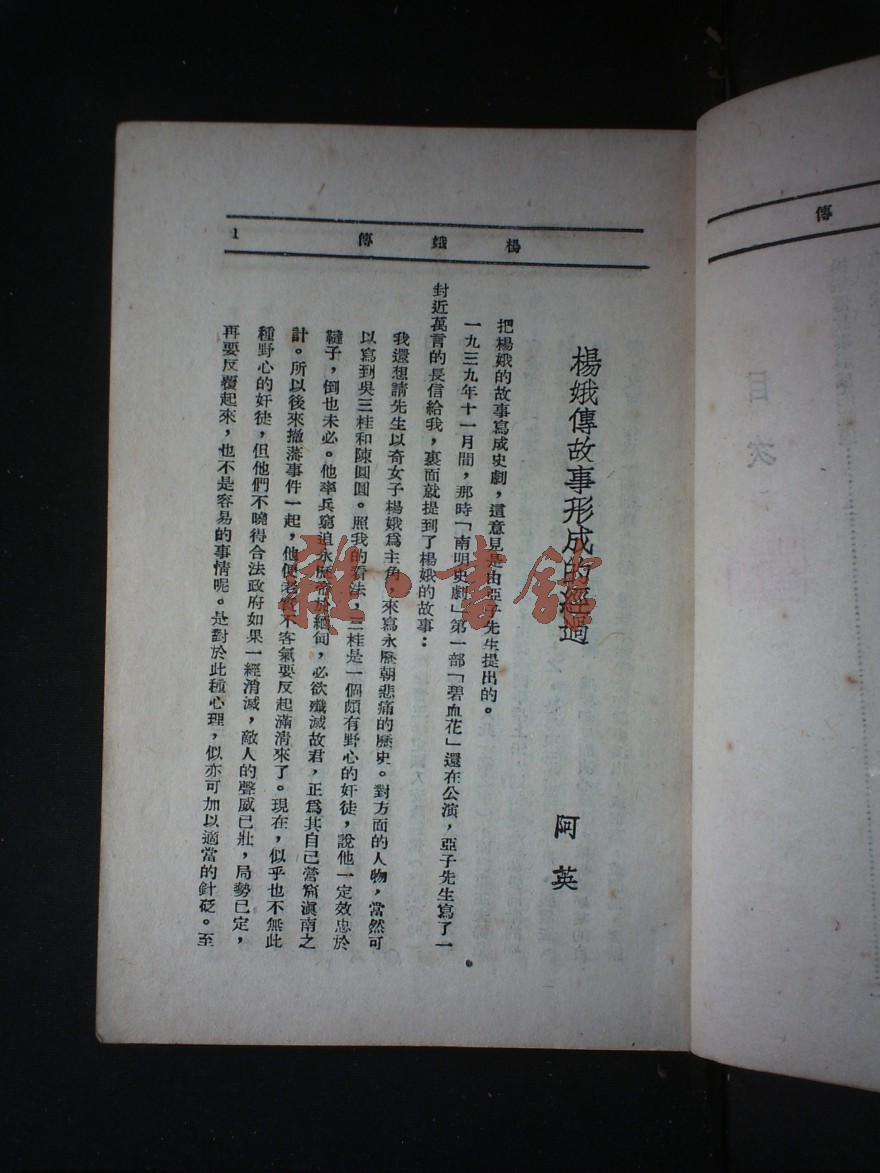 楊娥傳 1
楊娥傳故事形成的經過
阿英
把楊娥的故事寫成史劇，這意見是由亞子先生提出的。
一九三九年十一月間，那時「南明史劇」第一部「碧血花」還在公演，亞子先生寫了一
封近萬言的長信給我，裏面就提到了楊娥的故事：
我還想請先生以奇女子楊娥爲主角，來寫永曆朝悲痛的歷史。對方面的人物，當然可
以寫到吳三桂和陳圓圓。照我的看法，三桂是一個頗有野心的奸徒，說他一定效忠於
韃子，倒也未必。他率兵窮追永曆帝於緬甸，必欲殲滅故君，正爲其自己營窟滇南之
計。所以後來撤藩事件一起，他便老實不客氣要反起滿清來了。現在，似乎也不無此
種野心的奸徒，但他們不曉得合法政府如果一經消滅，敵人的聲威已壯，局勢已定，
再要反覆起來，也不是容易的事情呢。是對於此種心理，似亦可加以適當的針砭。至
傳
目次
雜·書館